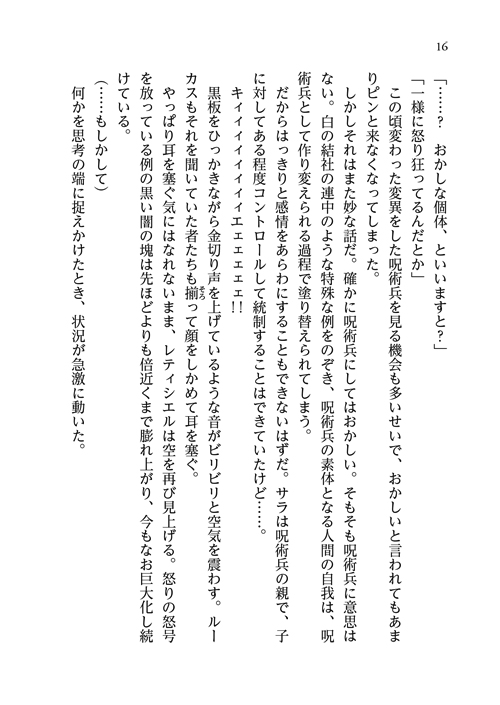 16
「……？　おかしな個体、といいますと？」
「一様に怒り狂ってるんだとか」
　この頃変わった変異をした呪術兵を見る機会も多いせいで、おかしいと言われてもあま
りピンと来なくなってしまった。
　しかしそれはまた妙な話だ。確かに呪術兵にしてはおかしい。そもそも呪術兵に意思は
ない。白の結社の連中のような特殊な例をのぞき、呪術兵の素体となる人間の自我は、呪
術兵として作り変えられる過程で塗り替えられてしまう。
　だからはっきりと感情をあらわにすることもできないはずだ。サラは呪術兵の親で、子
に対してある程度コントロールして統制することはできていたけど……。
　キィィィィィィィィエェェェェェェ!!
　黒板をひっかきながら金切り声を上げているような音がビリビリと空気を震わす。ルー
カスもそれを聞いていた者たちも揃って顔をしかめて耳を塞ぐ。
そろ
　やっぱり耳を塞ぐ気にはなれないまま、レティシエルは空を再び見上げる。怒りの怒号
を放っている例の黒い闇の塊は先ほどよりも倍近くまで膨れ上がり、今もなお巨大化し続
けている。
（……もしかして）
　何かを思考の端に捉えかけたとき、状況が急激に動いた。